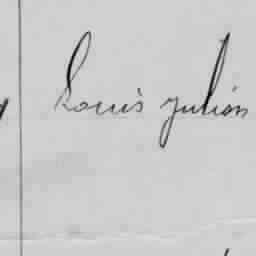 Louis Julién